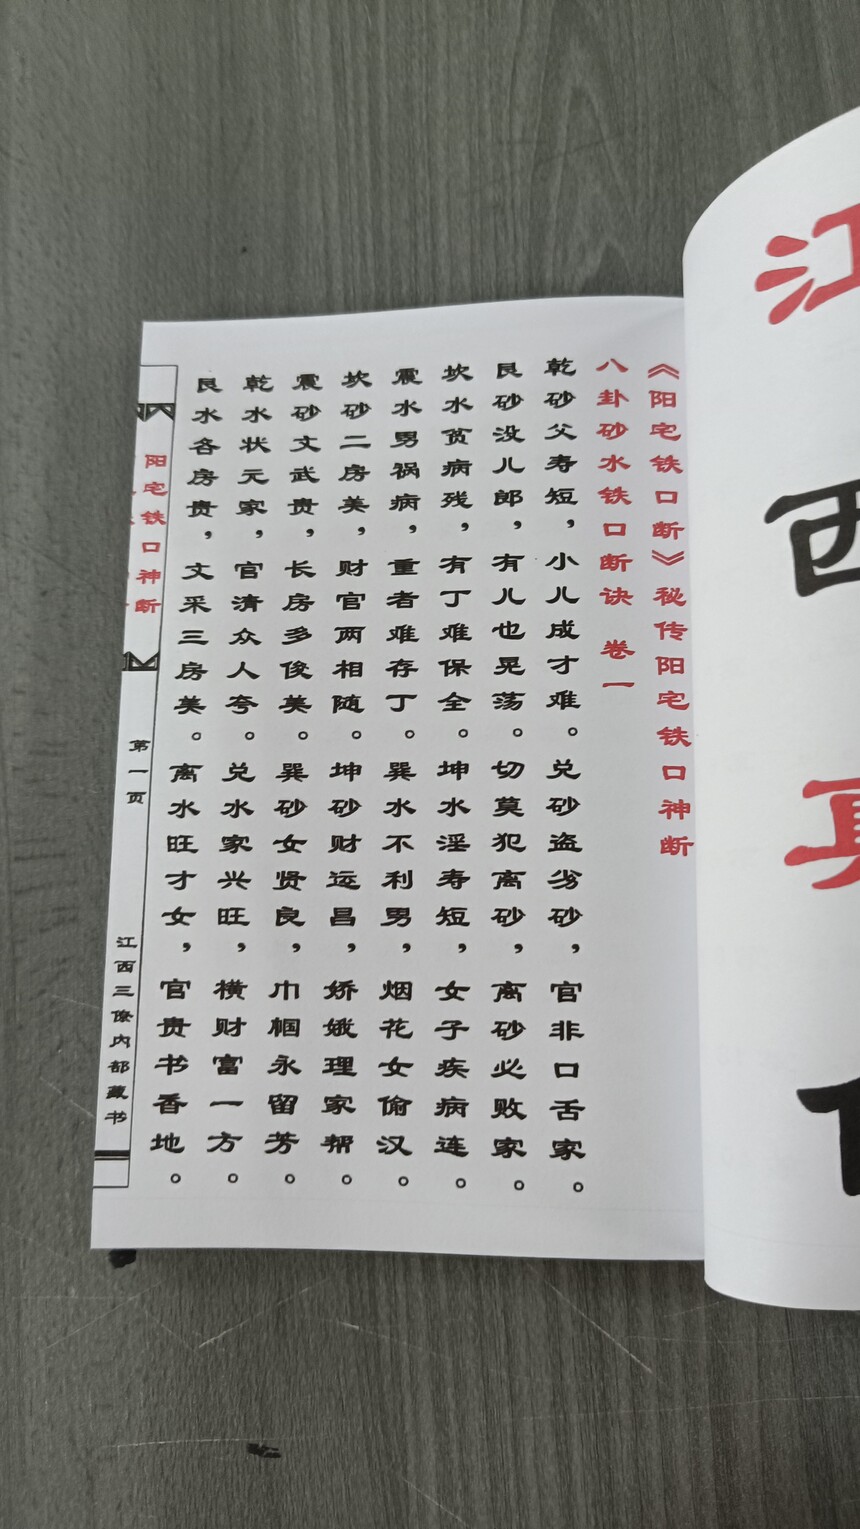 《阳宅铁口断》秘传阳宅铁口神断
八卦砂水铁口断诀 卷一
乾砂父寿短，小儿成才难。兑砂盗劣砂，官非口舌家。
艮砂没儿郎，有儿也晃荡。切莫犯离砂，离砂必败家。
坎水贫病残，有丁难保全。坤水淫寿短，女子疾病连。
震水男祸病，重者难存丁。巽水不利男，烟花女偷汉。
坎砂二房美，财官两相随。坤砂财运昌，娇娥理家帮。
震砂文武贵，长房多俊美。巽砂女贤良，巾帼永留芳。
乾水状元家，官清众人夸。兑水家兴旺，横财富一方。
艮水各房贵，文采三房美。离水旺才女，官贵书香地。
阳宅铁口神断
第一页
江西三僚内部藏书
江
西